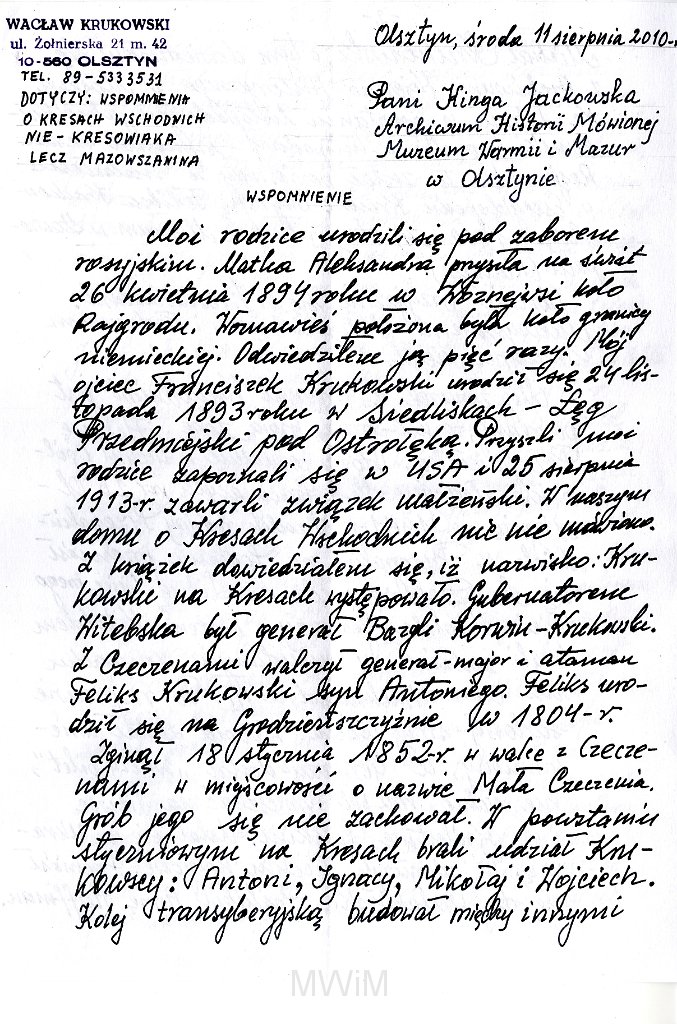 WACŁAW KRUKOWSKI
ul. Żołnierska 21 m. 42
10-560 OLSZTYN
TEL. 89-5333531
DOTYCZY: WSPOMNIENIA
O KRESACH WSCHODNICH
NIE-KRESOWIAKA
LECZ MAZOWSZANINA
Olsztyn, środa 11 sierpnia 2010-r.
Pani Kinga Jackowska
Archiwum Historii Mówionej
Muzeum Warmii i Mazur
w Olsztynie.
WSPOMNIENIE
Moi rodzice urodzili się pod zaborem
rosyjskim. Matka Aleksandra przyszła na świat
26 kwietnia 1894 roku w Woznejwsi koło
Rajgrodu. Woznawieś położona była koło granicy
niemieckiej. Odwiedziłem ją pięć razy. Mój
ojciec Franciszek Krukowski urodził się 24 lis-
topada 1893 roku w Siedliskach - Łęg
Przedmiejski pod Ostrołęką. Przyszli moi
rodzice zapoznali się w USA i 25 sierpnia
1913-r. zawarli związek małżeński. W naszym
domu o Kresach Wschodnich nic nie mówiono.
Z książek dowiedziałem się, iż nazwisko: Kru-
kowski na Kresach występowało. Gubernatorem
Witebska był generał Bazyli Korwin-Krukowski.
Z Czeczenami walczył generał-major i ataman
Feliks Krukowski syn Antoniego. Feliks uro-
dził się na Grodzieńszczyźnie w 1804-r.
Zginął 18 stycznia 1852-r. w walce z Czecze-
nami w miejscowości o nazwie Mała Czeczenia.
Grób jego się nie zachował. W powstaniu
styczniowym na Kresach brali udział Kru-
kowscy: Antoni, Ignacy, Mikołaj i Wojciech.
Kolej transyberyjską budował między innymi
MWiM